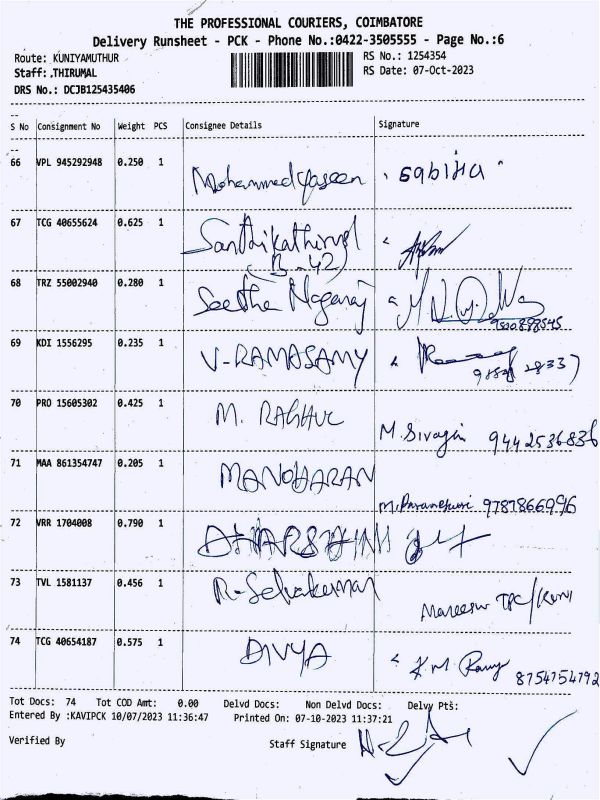 THE PROFESSIONAL COURIERS, COIMBATORE
Delivery Runsheet - PCK - Phone No.:0422-3505555 - Page No.:6
Route: KUNIYAMUTHUR RS No.: 1254354
Staff: .THIRUMAL RS Date: 07-Oct-2023
DRS No.: DCJB125435406
S No Consignment No Weight PCS Consignee Details Signature
66 VPL 945292948 0.250 1 Mohammed Yaseen
67 TCG 40655624 0.625 1 Santhikathirvel
(B-42)
68 TRZ 55002940 0.280 1 Seetha Nagaraj
69 KDI 1556295 0.235 1 V-RAMASAMY
70 PRO 15605302 0.425 1 M. RAGHUL M. Sivagin 9442536836
71 MAA 861354747 0.205 1 MANOHARAN M. Parameshwari 9787866996
72 VRR 1704008 0.790 1 DHARSHINI
73 TVL 1581137 0.456 1 R-Selvakumar
74 TCG 40654187 0.575 1 DIVYA K.M. 8754754792
Tot Docs: 74 Tot COD Amt: 0.00 Delvd Docs: Non Delvd Docs: Delvy Pts:
Entered By :KAVIPCK 10/07/2023 11:36:47 Printed On: 07-10-2023 11:37:21
Verified By Staff Signature